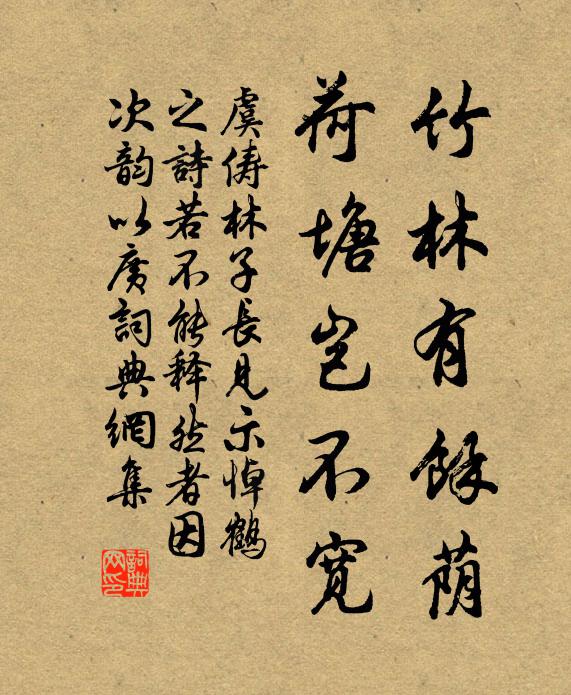 竹林有餘荫
荷塘岂不寛
虞俦林子長見示悼鶴
之詩若不能释然者因
次韵以廣詞典網集
詞典
网印